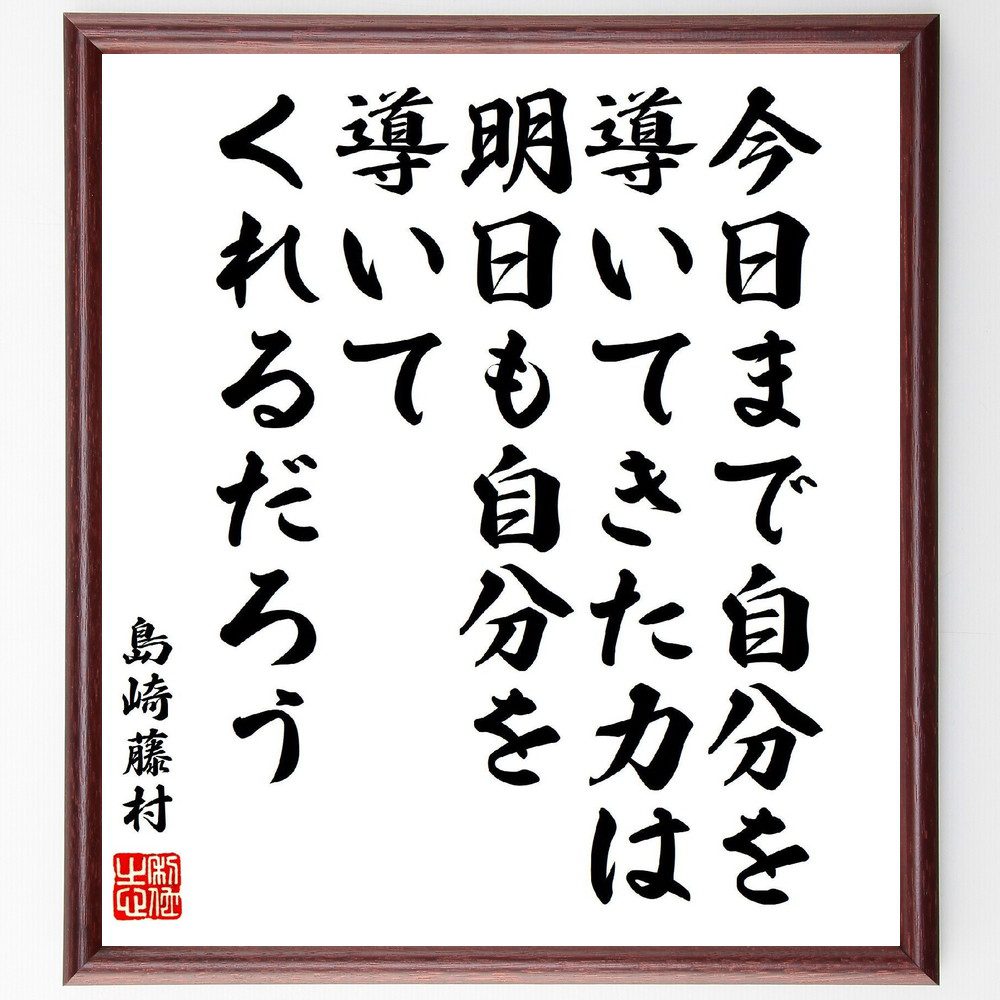 今日まで自分を
導いてきた力は
明日も自分を
導いて
くれるだろう
島崎藤村